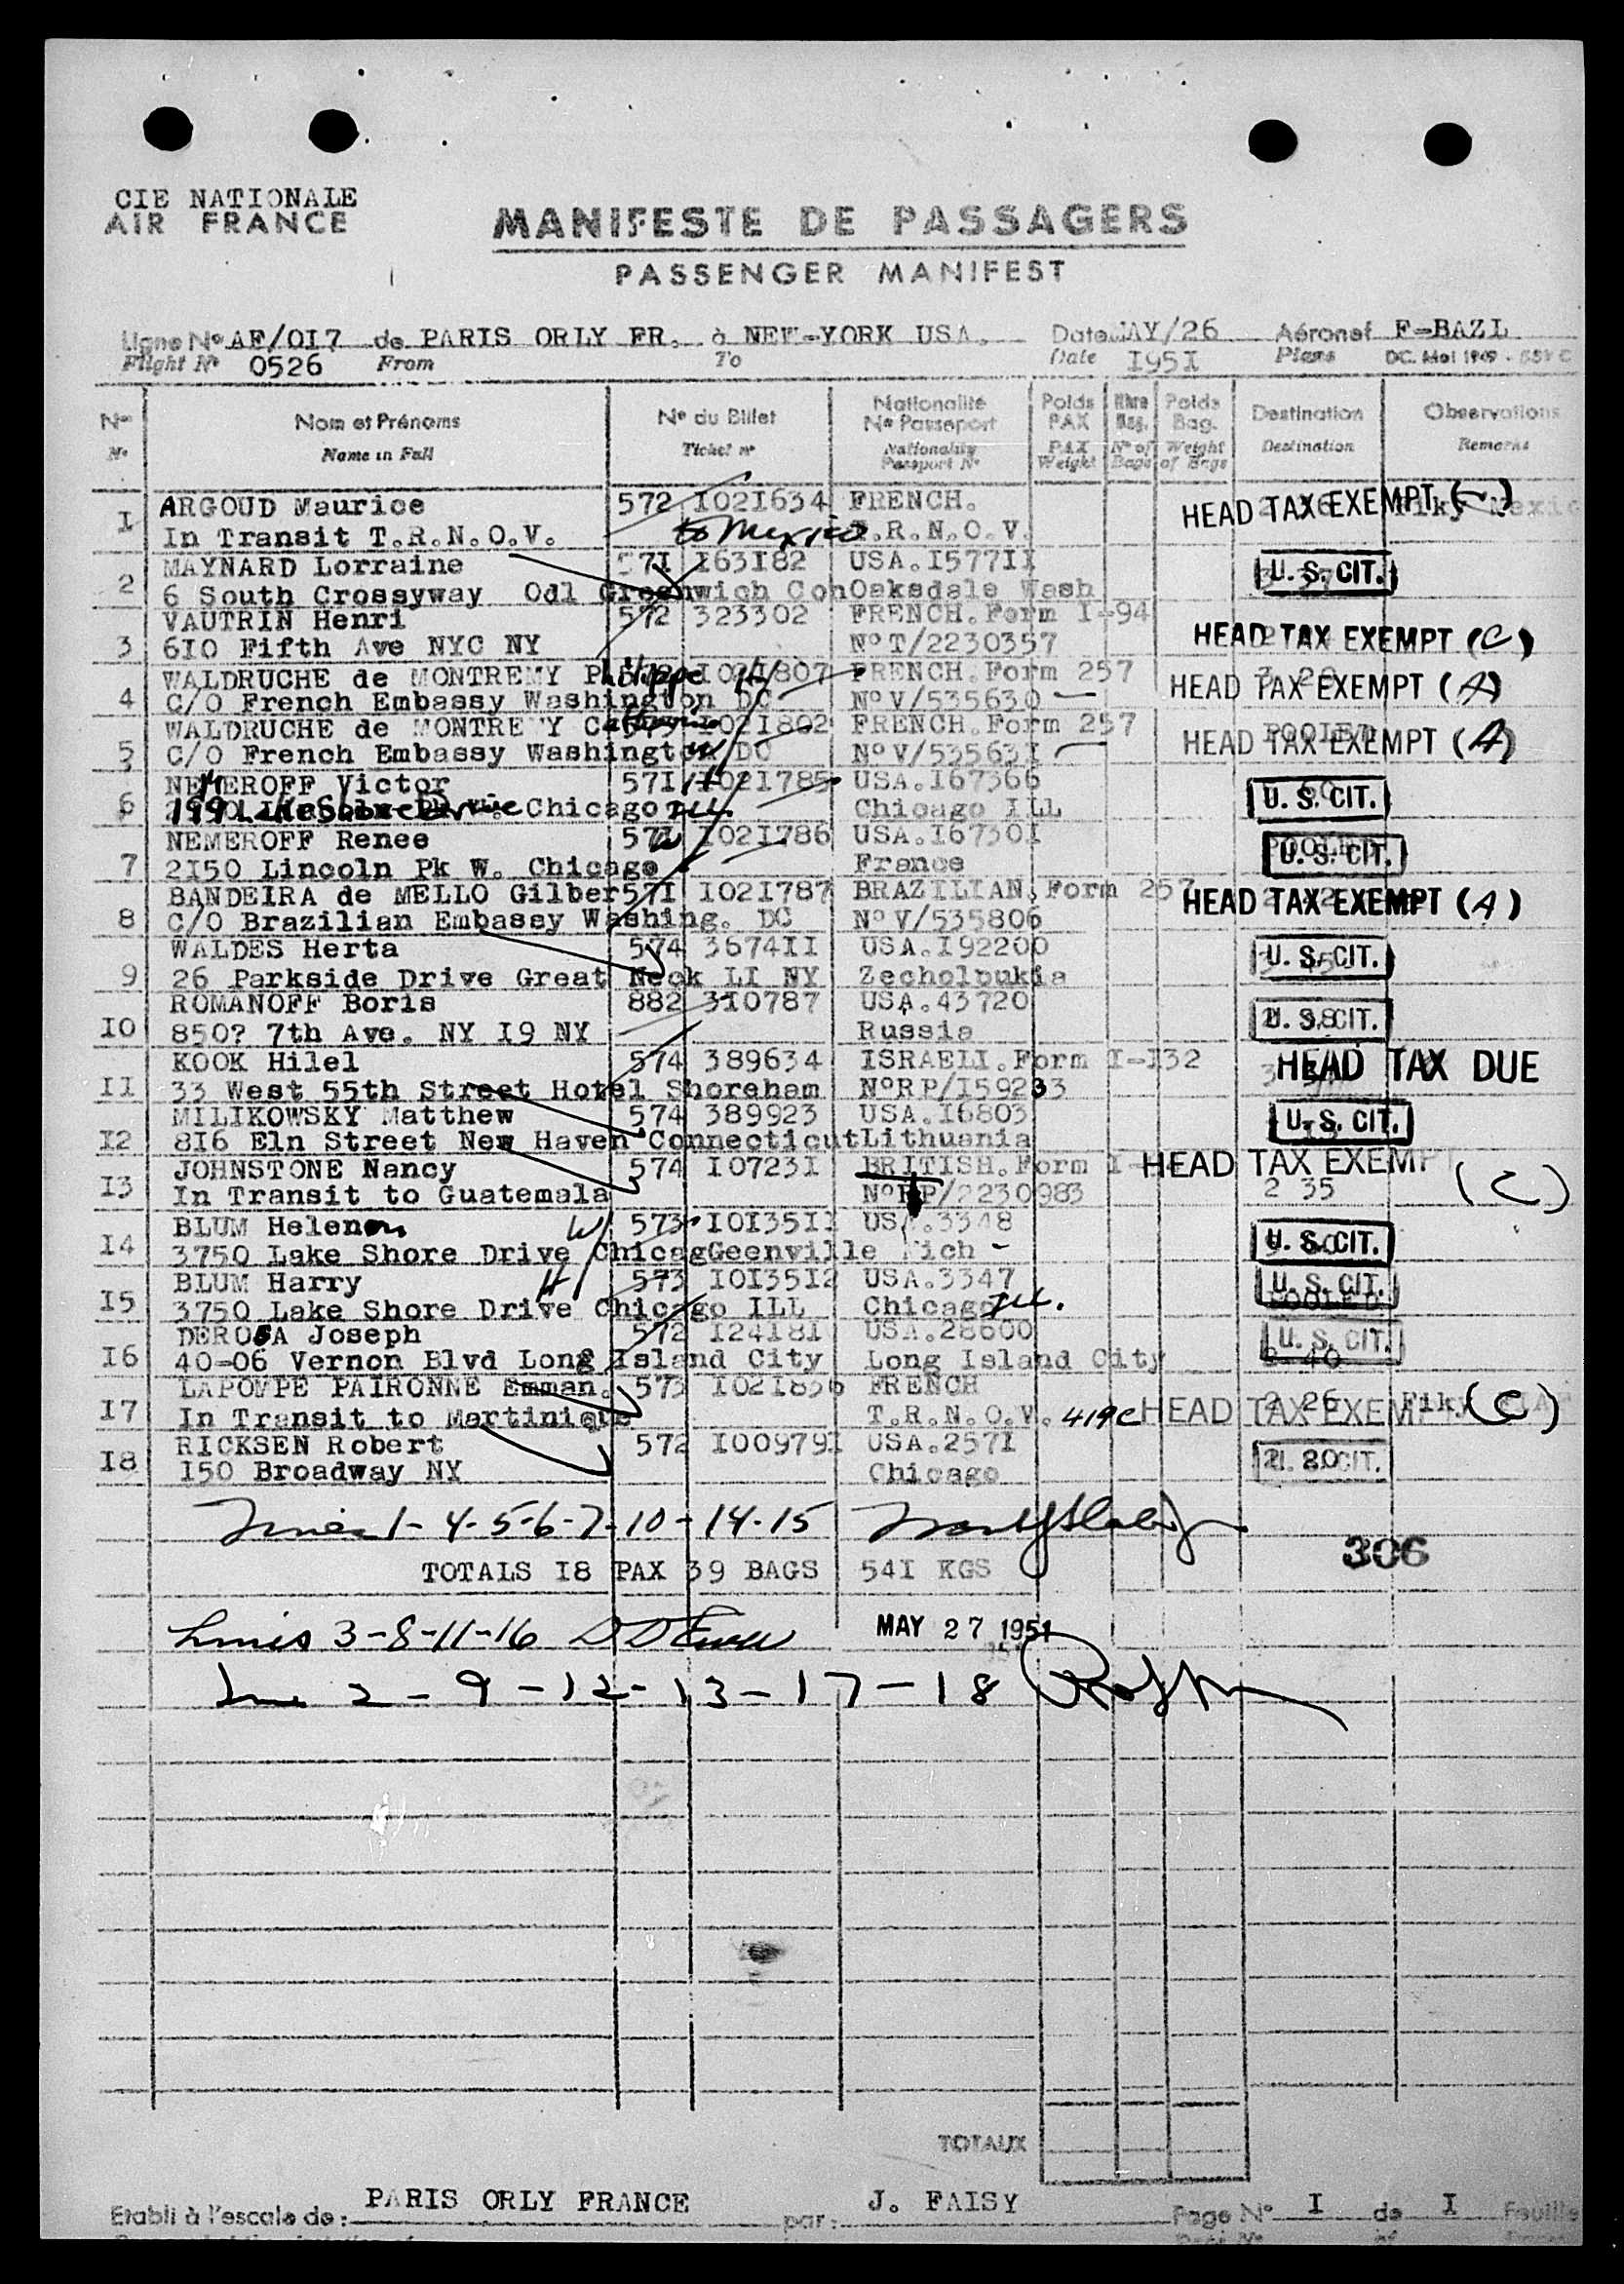 CIE NATIONALE
AIR FRANCE
MANIFESTE DE PASSAGERS
PASSENGER MANIFEST
Ligne No AF/OI7 de PARIS ORLY FR. à NEW-YORK USA. Date MAY/26 Aéronef F-BAZL
Flight No 0526 From To Date I95I Plane DC.
No Nom et Prénoms No du Billet Nationalité No Passeport Poids PAX Nbre Bag. Poids Bag. Destination Observations
No Name in Full Ticket no Nationality Passport No PAX Weight No of Bags Weight of Bags Destination Remarks
I ARGOUD Maurice 572 I02I634 FRENCH. HEAD TAX EXEMPT
In Transit T.R.N.O.V. to Mexico T.R.N.O.V.
2 MAYNARD Lorraine 57I I63I82 USA.I577II U. S. CIT.
6 South Crossyway Odl Greenwich Con Oaksdale Wash
VAUTRIN Henri 572 323302 FRENCH.Form I-94
3 6I0 Fifth Ave NYC NY No T/2230357 HEAD TAX EXEMPT (C)
WALDRUCHE de MONTREMY Philippe I02I807 FRENCH.Form 257
4 C/O French Embassy Washington DC No V/535630 HEAD TAX EXEMPT (A)
WALDRUCHE de MONTREMY I02I802 FRENCH.Form 257 POOLED
5 C/O French Embassy Washington DC No V/53563I HEAD TAX EXEMPT (A)
NEMEROFF Victor 57I I02I785 USA.I67366
6 Lake Shore Drive Chicago Ill. Chicago ILL U. S. CIT.
NEMEROFF Renee 57I I02I786 USA.I6730I POOLED
7 2I50 Lincoln Pk W. Chicago France U. S. CIT.
BANDEIRA de MELLO Gilber 57I I02I787 BRAZILIAN.Form 257
8 C/O Brazilian Embassy Washing. DC No V/535806 HEAD TAX EXEMPT (A)
WALDES Herta 574 3674II USA.I92200
9 26 Parkside Drive Great Neck LI NY Zecholoukia U. S. CIT.
ROMANOFF Boris 882 3I0787 USA.43720
I0 850? 7th Ave. NY I9 NY Russia U. S. CIT.
KOOK Hilel 574 389634 ISRAELI.Form I-I32
II 33 West 55th Street Hotel Shoreham No RP/I59233 HEAD TAX DUE
MILIKOWSKY Matthew 574 389923 USA.I6803
I2 8I6 Eln Street New Haven Connecticut Lithuania U. S. CIT.
JOHNSTONE Nancy 574 I0723I BRITISH.Form HEAD TAX EXEMPT
I3 In Transit to Guatemala No RP/2230983 2 35 (C)
BLUM Helen 573 I0I35II USA.3348
I4 3750 Lake Shore Drive Chicag Geenville Mich U. S. CIT.
BLUM Harry 573 I0I35I2 USA.3347
I5 3750 Lake Shore Drive Chicago ILL Chicago Ill. U. S. CIT. POOLED
DEROSA Joseph 572 I24I8I USA.28600
I6 40-06 Vernon Blvd Long Island City Long Island City U. S. CIT.
LAPOMPE PAIRONNE Emman. 573 I02I836 FRENCH 2 26
I7 In Transit to Martinique T.R.N.O.V. 419c HEAD TAX EXEMPT (C)
RICKSEN Robert 572 I00979I USA.257I
I8 I50 Broadway NY Chicago U. S. CIT.
Lines 1-4-5-6-7-10-14-15
306
TOTALS I8 PAX 39 BAGS 54I KGS
Lines 3-8-11-16
MAY 27 1951
Line 2-9-12-13-17-18
TOTAUX
Etabli à l'escale de: PARIS ORLY FRANCE par: J. FAISY Page No I de I Feuille